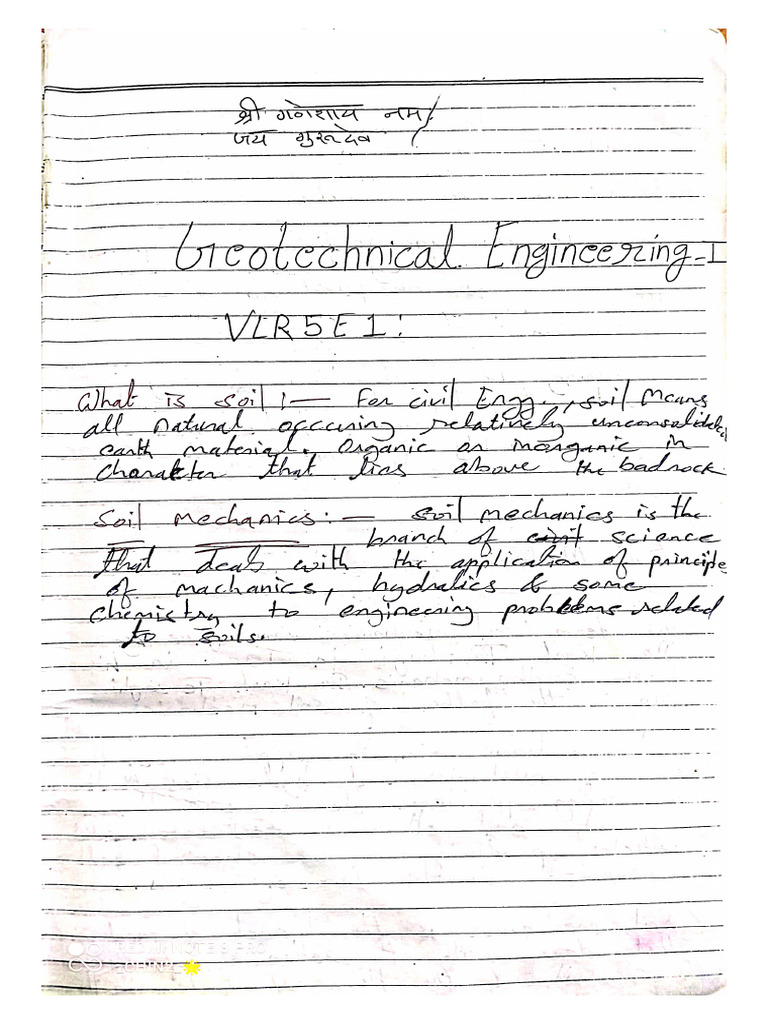 श्री गणेशाय नमः
जय गुरुदेव
Geotechnical Engineering-I
VLR5E1:
What is soil :— For civil Engg., soil means
all natural occuring relatively unconsolidated
earth material. Organic or inorganic in
charakter that lias above the badrock
Soil mechanics:— soil mechanics is the
branch of civil science
that deals with the application of principle
of machanics, hydralics & some
chemistry to engineering problems related
to soils.
NOTE 8 PRO